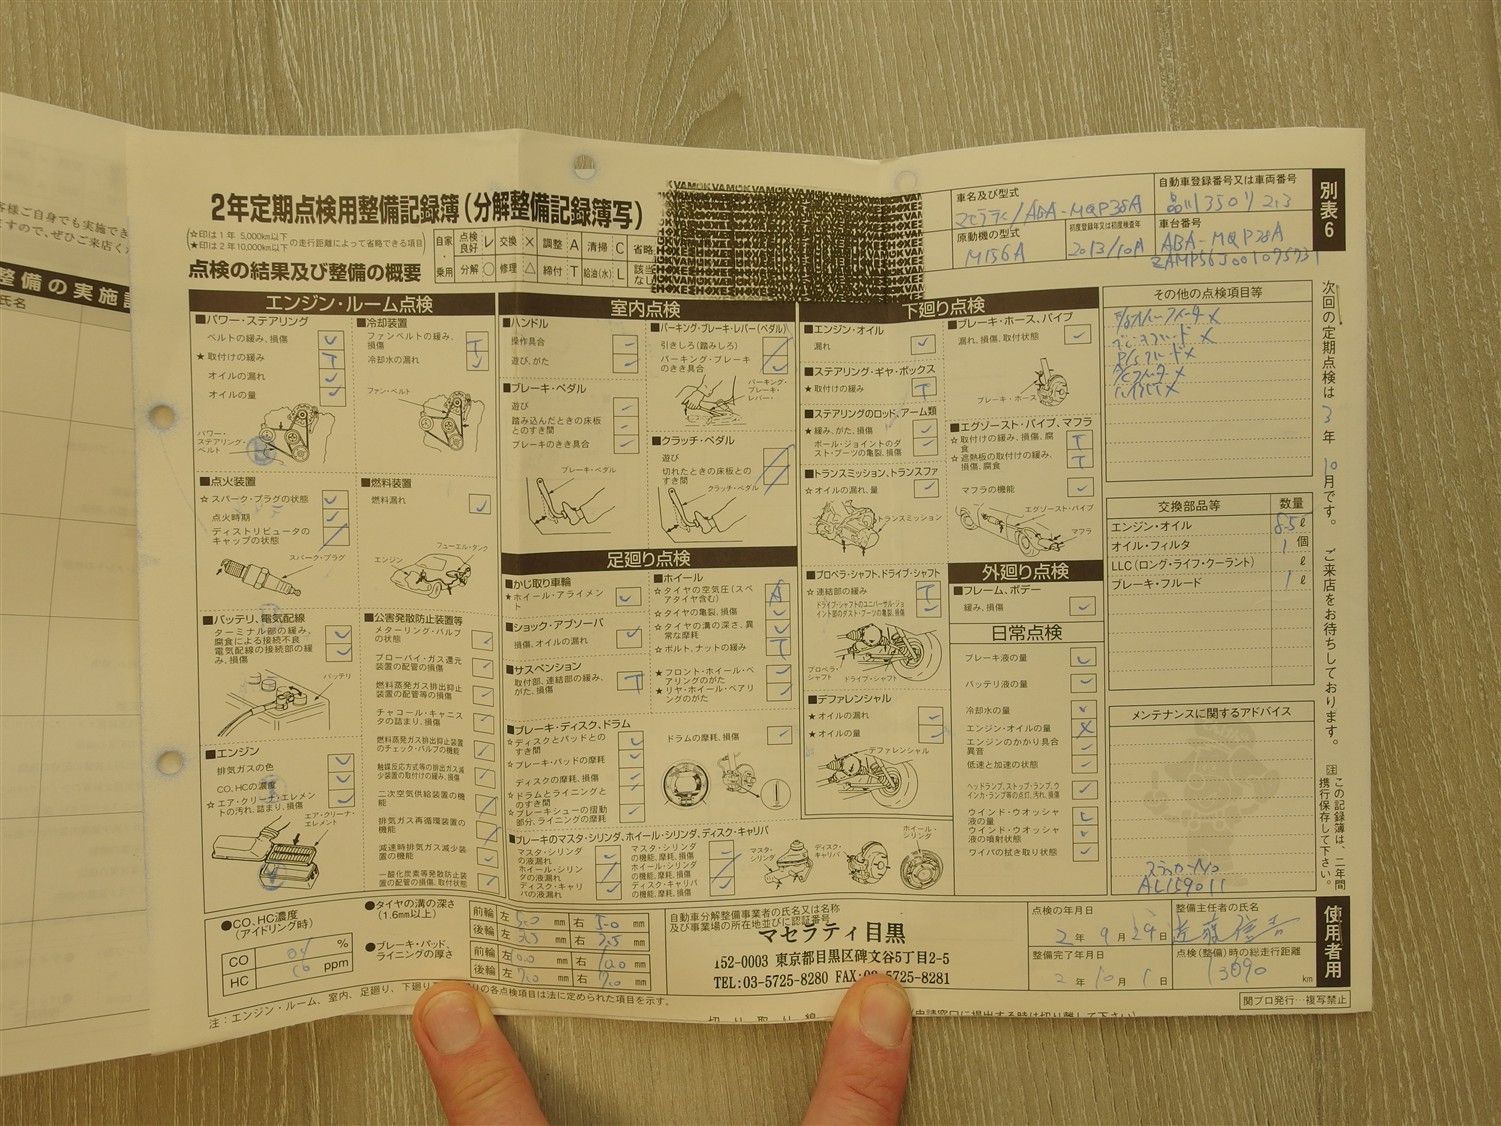 2年定期点検用整備記録簿(分解整備記録簿写)
☆印は1年 5,000km以下
★印は2年10,000km以下
の走行距離によって省略できる項目
点検の結果及び整備の概要
自家・乗用
点検良好 レ 交換 × 調整 A 清掃 C 省略
分解 ○ 修理 △ 締付 T 給油(水) L 該当なし
車名及び型式
マセラティ/ABA-MQP38A
原動機の型式
M156A
初度登録年又は初度検査年
2013/10A
自動車登録番号又は車両番号
車台番号
別表6
エンジン・ルーム点検
■パワー・ステアリング
ベルトの緩み、損傷
★取付けの緩み T
オイルの漏れ
オイルの量
パワー・ステアリング・ベルト
■冷却装置
ファンベルトの緩み、損傷 T
冷却水の漏れ
ファン・ベルト
■点火装置
☆スパーク・プラグの状態
点火時期
ディストリビュータのキャップの状態
スパーク・プラグ
■燃料装置
燃料漏れ
フューエル・タンク
エンジン
■バッテリ、電気配線
ターミナル部の緩み、腐食による接続不良
電気配線の接続部の緩み、損傷
バッテリ
■公害発散防止装置等
メターリング・バルブの状態
ブローバイ・ガス還元装置の配管の損傷
燃料蒸発ガス排出抑止装置の配管等の損傷
チャコール・キャニスタの詰まり、損傷
燃料蒸発ガス排出抑止装置のチェック・バルブの機能
触媒反応方式等の排出ガス減少装置の取付けの緩み、損傷
二次空気供給装置の機能
排気ガス再循環装置の機能
減速時排気ガス減少装置の機能
一酸化炭素等発散防止装置の配管の損傷、取付状態
■エンジン
排気ガスの色
CO、HCの濃度
☆エア・クリーナ・エレメントの汚れ、詰まり、損傷
エア・クリーナ・エレメント
室内点検
■ハンドル
操作具合
遊び、がた
■ブレーキ・ペダル
遊び
踏み込んだときの床板とのすき間
ブレーキのきき具合
ブレーキ・ペダル
■パーキング・ブレーキ・レバー(ペダル)
引きしろ(踏みしろ)
パーキング・ブレーキのきき具合
パーキング・ブレーキ・レバー
■クラッチ・ペダル
遊び
切れたときの床板とのすき間
クラッチ・ペダル
足廻り点検
■かじ取り車輪
★ホイール・アライメント
■ショック・アブソーバ
損傷、オイルの漏れ
■サスペンション
取付部、連結部の緩み、がた、損傷 T
■ホイール
☆タイヤの空気圧(スペアタイヤ含む) A
☆タイヤの亀裂、損傷
☆タイヤの溝の深さ、異常な摩耗
☆ボルト、ナットの緩み T
★フロント・ホイール・ベアリングのがた
★リヤ・ホイール・ベアリングのがた
■ブレーキ・ディスク、ドラム
☆ディスクとパッドとのすき間
☆ブレーキ・パッドの摩耗
ディスクの摩耗、損傷
☆ドラムとライニングとのすき間
☆ブレーキシューの摺動部分、ライニングの摩耗
ドラムの摩耗、損傷
■ブレーキのマスタ・シリンダ、ホイール・シリンダ、ディスク・キャリパ
マスタ・シリンダの液漏れ
ホイール・シリンダの液漏れ
ディスク・キャリパの液漏れ
マスタ・シリンダの機能、摩耗、損傷
ホイール・シリンダの機能、摩耗、損傷
ディスク・キャリパの機能、摩耗、損傷
マスタ・シリンダ
ディスク・キャリパ
ホイール・シリンダ
下廻り点検
■エンジン・オイル
漏れ
■ステアリング・ギヤ・ボックス
★取付けの緩み T
■ステアリングのロッド、アーム類
★緩み、がた、損傷
ボール・ジョイントのダスト・ブーツの亀裂、損傷
■トランスミッション、トランスファ
☆オイルの漏れ、量
トランスミッション
■プロペラ・シャフト、ドライブ・シャフト
☆連結部の緩み T
ドライブ・シャフトのユニバーサル・ジョイント部のダスト・ブーツの亀裂、損傷
プロペラ・シャフト
ドライブ・シャフト
■デファレンシャル
★オイルの漏れ
★オイルの量
デファレンシャル
■ブレーキ・ホース、パイプ
漏れ、損傷、取付状態
ブレーキ・ホース
■エグゾースト・パイプ、マフラ
☆取付けの緩み、損傷、腐食 T
☆遮熱板の取付けの緩み、損傷、腐食 T
マフラの機能
エグゾースト・パイプ
マフラ
外廻り点検
■フレーム、ボデー
緩み、損傷
日常点検
ブレーキ液の量
バッテリ液の量
冷却水の量
エンジン・オイルの量 ×
エンジンのかかり具合異音
低速と加速の状態
ヘッドランプ、ストップ・ランプ、ウインカ・ランプ等の点灯、汚れ、損傷
ウインド・ウオッシャ液の量 L
ウインド・ウオッシャ液の噴射状態
ワイパの拭き取り状態
その他の点検項目等
交換部品等 数量
エンジン・オイル 8.5 ℓ
オイル・フィルタ 1 個
LLC(ロング・ライフ・クーラント) ℓ
ブレーキ・フルード 1 ℓ
メンテナンスに関するアドバイス
ステッカーNo
AL159011
次回の定期点検は 3 年 10 月です。 ご来店をお待ちしております。
注 この記録簿は、二年間携行保存して下さい。
使用者用
●CO、HC濃度(アイドリング時)
CO %
HC ppm
●タイヤの溝の深さ(1.6mm以上)
前輪 左 5.0 mm 右 5.0 mm
後輪 左 mm 右 mm
●ブレーキ・パッド、ライニングの厚さ
前輪 左 mm 右 10.0 mm
後輪 左 7.0 mm 右 7.0 mm
自動車分解整備事業者の氏名又は名称及び事業場の所在地並びに認証番号
マセラティ目黒
152-0003 東京都目黒区碑文谷5丁目2-5
TEL:03-5725-8280 FAX:03-5725-8281
点検の年月日
2 年 9 月 29 日
整備完了年月日
2 年 10 月 1 日
整備主任者の氏名
点検(整備)時の総走行距離
13090 km
関プロ発行…複写禁止
切り取り線